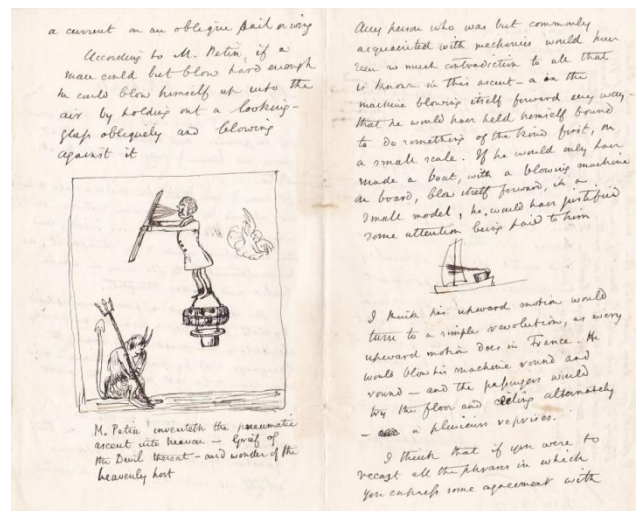 a current on an oblique sail or wing
According to M. Petin, if a
man could but blow hard enough
he could blow himself up into the
air by holding out a looking-
glass obliquely and blowing
against it
M. Petin inventeth the pneumatic
ascent into heaven – Grief of
the Devil thereat – and wonder of the
heavenly host
Any person who was but commonly
acquainted with mechanics would have
seen so much contradiction to all that
is known in this ascent – a on the
machine blowing itself forward any way –
that he would have held himself bound
to do something of the kind first, on
a small scale. If he would only have
made a boat, with a blowing machine
on board, blow itself forward, in a
small model, he would have justified
some attention being paid to him
I think his upward motion would
turn to a simple revolution, as every
upward motion does in France. He
would blow his machine round and
round – and the passengers would
try the floor and ceiling alternately
– a plusieurs reprises.
I think that if you were to
recast all the phrases in which
you express some agreement with